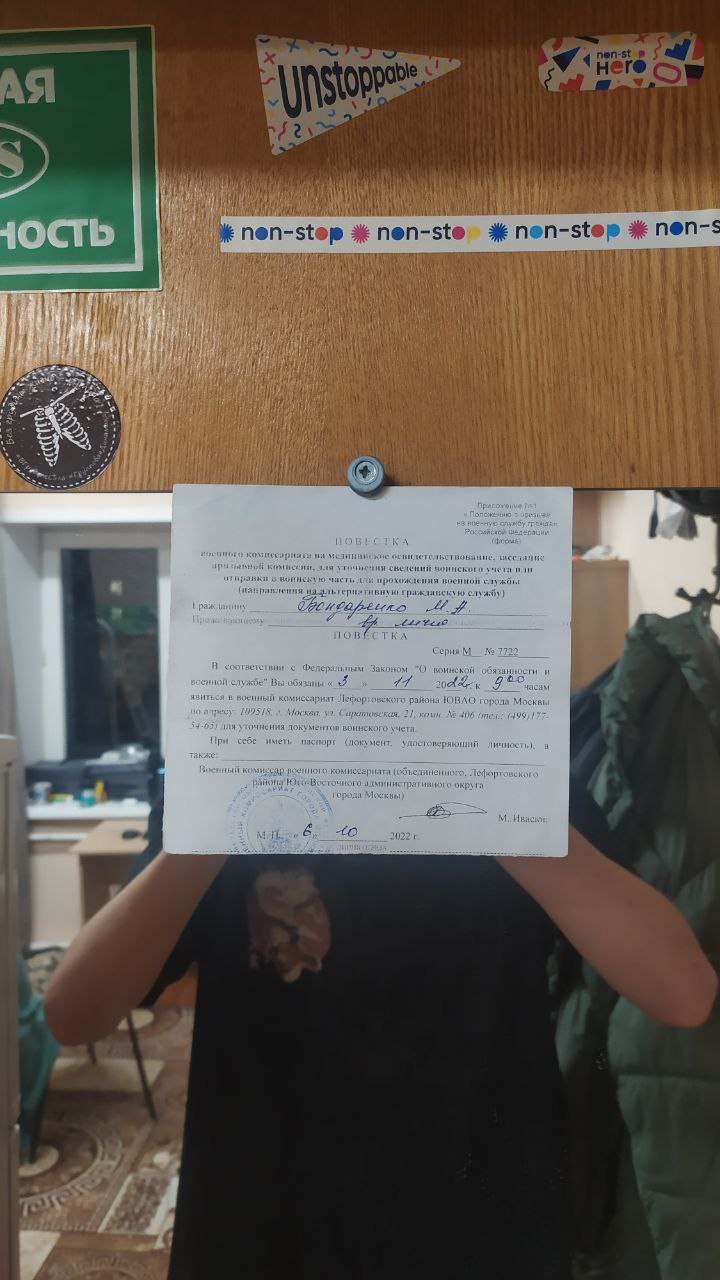 АЯ
S
НОСТЬ
unstoppable
non-stop
Hero
non-stop non-stop non-stop non-s
Приложение №1
к Положению о призыве
на военную службу граждан
Российской Федерации
(форма)
ПОВЕСТКА
военного комиссариата на медицинское освидетельствование, заседание
призывной комиссии, для уточнения сведений воинского учета или
отправки в воинскую часть для прохождения военной службы
(направления на альтернативную гражданскую службу)
Гражданину Бондаренко М.А.
Проживающему вр лично
ПОВЕСТКА
Серия М № 7722
В соответствии с Федеральным Законом "О воинской обязанности и
военной службе" Вы обязаны « 3 » 11 2022г. к 9 00 часам
явиться в военный комиссариат Лефортовского района ЮВАО города Москвы
по адресу: 109518, г. Москва, ул. Саратовская, 21, комн. № 406 (тел.: (499)177-
54-65) для уточнения документов воинского учета.
При себе иметь паспорт (документ, удостоверяющий личность), а
также:
Военный комиссар военного комиссариата (объединенного, Лефортовского
района Юго-Восточного административного округа
города Москвы)
М. Ивасюк
М. П. « 6 » 10 2022 г.
ЛИНИЯ ОТРЕЗА